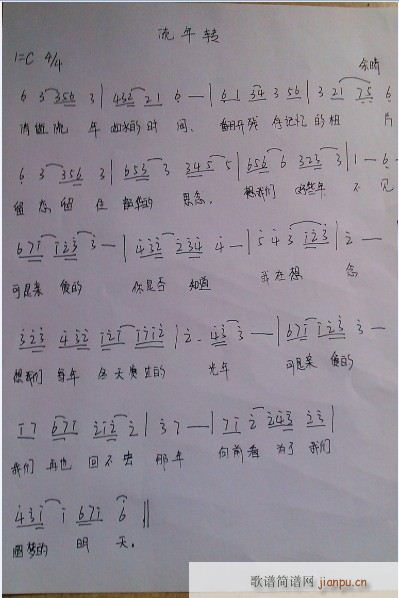 流年转
1=C 4/4
6 3 356 3 | 432 21 6 — | 61 34 3 56 | 3 21 75 6
流 年 的时 间、 翻开残 存记忆 的相 片
6 3 356 3 | 653 3 345 5 | 656 6 323 3 | 1 — 6
留 恋 留 住 思念。 想我们 那些年 不 见
671 123 3 — | 432 234 4 — | 5 4 3 123 | 2 —
可是亲 爱的 你是否 知道 我 在 想 念
323 432 121 1712 | 2 - 43 3 — | 671 123 3 —
想我们 每年 冬天 光年 可是亲 爱的
17 671 212 2 | 3 7 — | 71 2 243 23 |
我们 再也 回不去 那年 向前看 为了 我们
431 1 671 6 ||
圆梦的 明 天。
歌谱简谱网
jianpu.cn